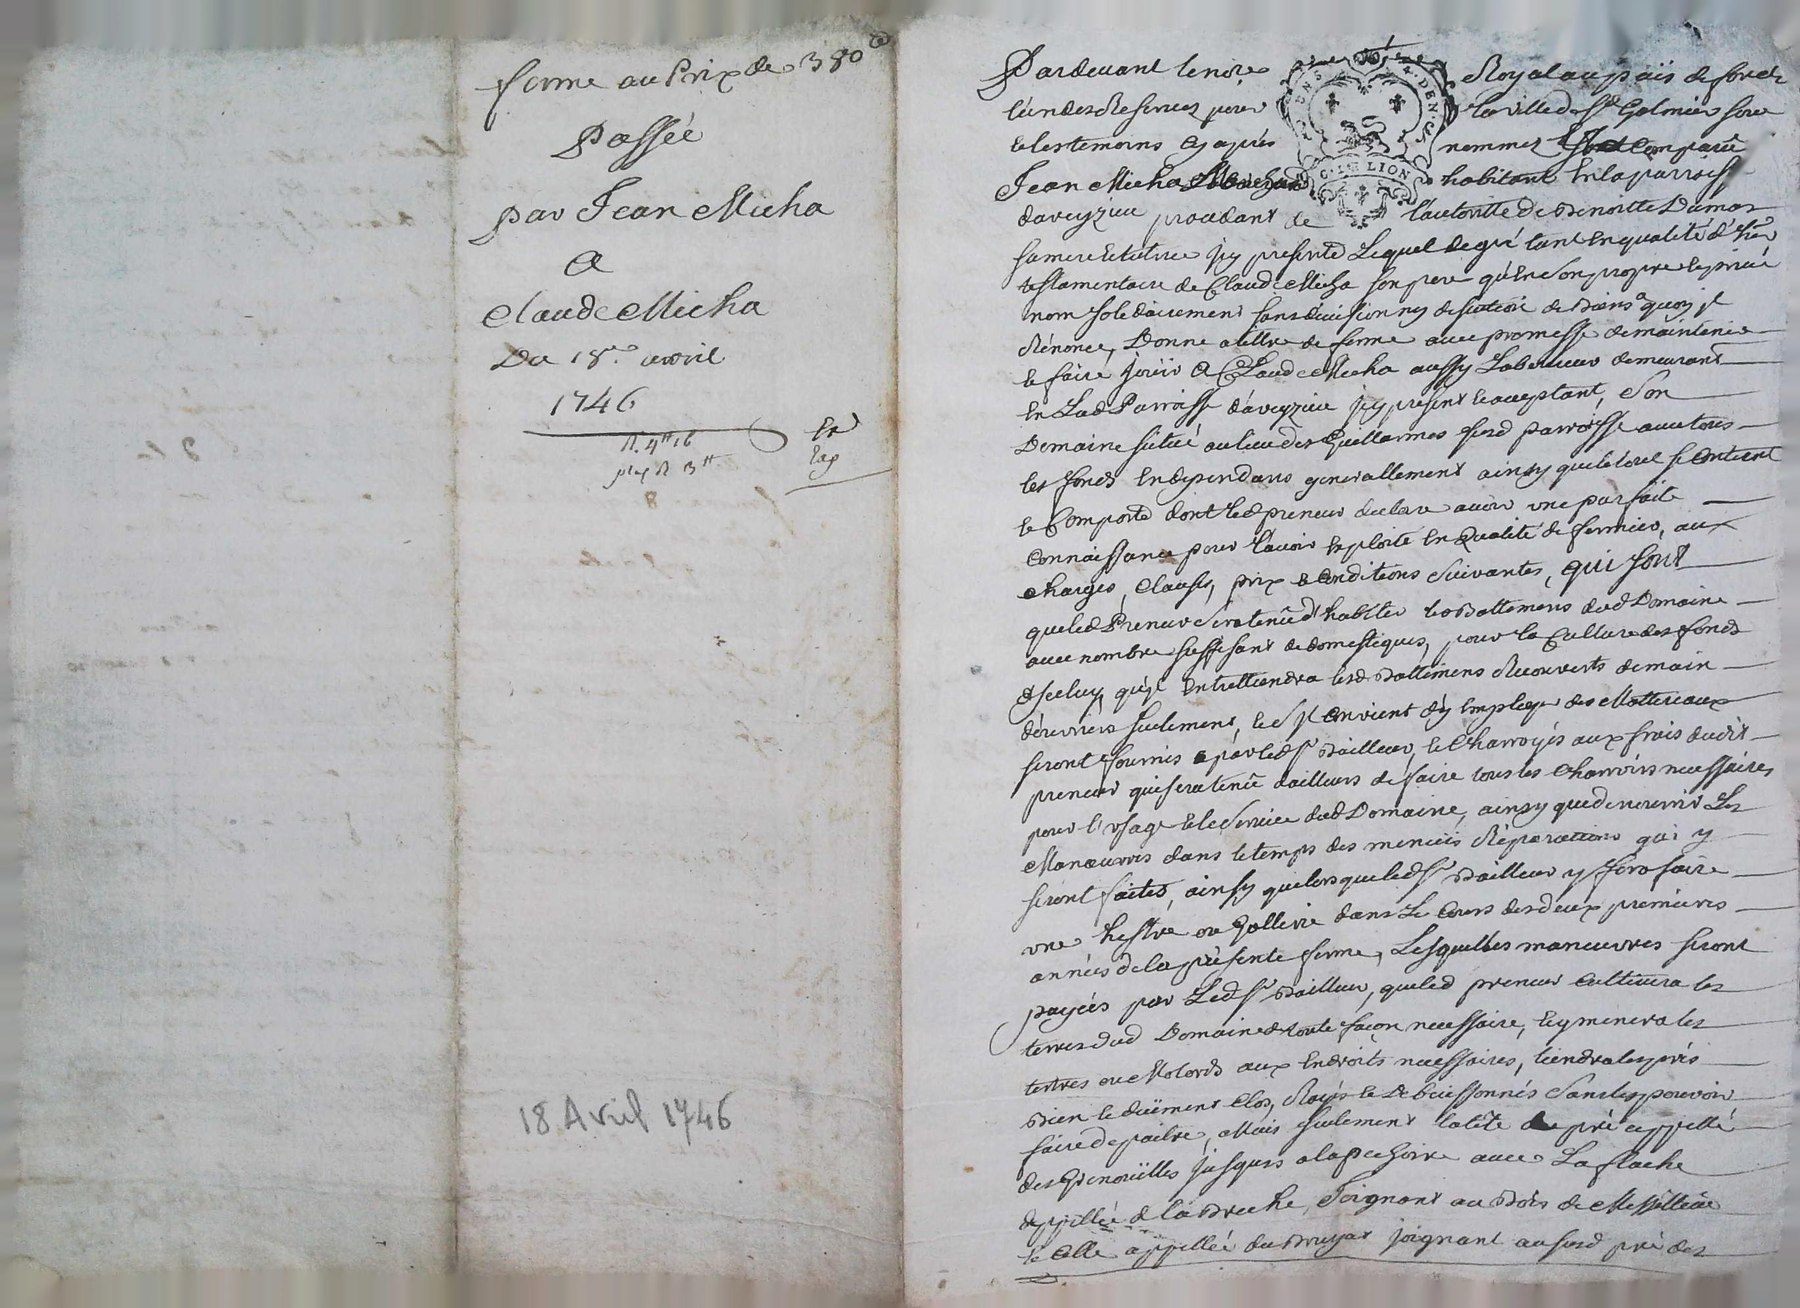 ferme au Prix de 380
Passée
par Jean Micha
A
Claude Micha
Du 18e avril
1746
18 Avril 1746
Pardevant le nore Royal au païs de forests
l'un des Reservez pour la ville de St Galmier sous
et les temoins cy après nommez fut comparû
Jean Micha habitant en la parroisse
daveyzieu procedant de l'autorité de Benoitte Dumas
sa mere et tutrice icy presente Lequel de gré tant en qualité d'her
testamentaire de Claude Micha son pere qu'en son propre et privé
nom solidairement sans division ny de biens a quoy il
Rénonce, Donne a tittre de ferme avec promesse de maintenir
et faire jouir A Claude Micha aussy Laboureur demeurant
en Lad Parroisse d'aveyzieu icy present et acceptant, Son
Domaine situé au lieu des Guillarmes susd parroisse avec tous
les fonds en dependans generallement ainsy que le tout se contient
et Comporte dont led preneur declare avoir une parfaite
connaissance pour l'avoir exploité en Qualité de fermier, aux
charges, clauses, prix & conditions suivantes, qui sont
que led Preneur sera tenû d'habiter les Battimens dud Domaine
avec nombre suffisant de domestiques, pour la Culture des fonds
d'iceluy, qu'il entrettiendra lesd Battimens Recouverts de main
d'ouvriers seulement, et s'il convient d'y employer des Matteriaux
seront fournis par led Sr Bailleur, et Charroyés aux frais dudit
preneur qui sera tenû d'ailleurs de faire tous les charrois necessaires
pour l'usage et le service dud Domaine, ainsy que de nourrir Les
Manœuvres dans le temps des menües Réparations qui y
seront faites, ainsy que lors que led Sr Bailleur y fera faire
une ou Gallerie dans Le Cours des deux premieres
années de la présente ferme, Lesquelles manœuvres seront
payées par Led Sr Bailleur, que led preneur cultivera les
terres dud Domaine de toute façon necessaire, et y menera les
tertres ou aux endroits necessaires, tiendra les prés
Bien et düement Clos, Rayés et Debuissonnés Sans les pouvoir
faire depaitre, Mais seulement la tête du pré appellé
des Grenoüilles jusques a la avec La flache
appellée de la Breche, Joignant au Bois de
et Celle appellée du Bruyas joignant au susd pré des